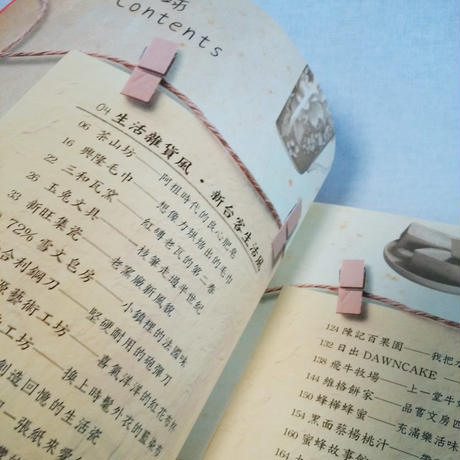 Contents
04 生活雜貨風・新台客生活風
06 茶山坊——阿祖時代的良心肥皂
16 興隆毛巾——想像力烘焙出的毛巾
22 三和瓦窯——紅磚老瓦的第二春
26 玉兔文具——一枝筆走過半世紀
33 新旺集瓷——老窯廠新風貌
72%雪文皂房——小鎮裡的法國味
合利鋼刀——堅硬耐用的砲彈刀
藝術工坊——喜氣洋洋的
工坊——換上時髦外衣的藍染布
創造回憶的生活瓷
一張紙來
124 陳記百果園——我把水
132 日出 DAWNCAKE
138 飛牛牧場——上一堂牛
144 維格餅家——品嘗文房四
150 蜂樺蜂蜜——充滿樂活味
154 黑面蔡楊桃汁
160 蜜蜂故事館
164